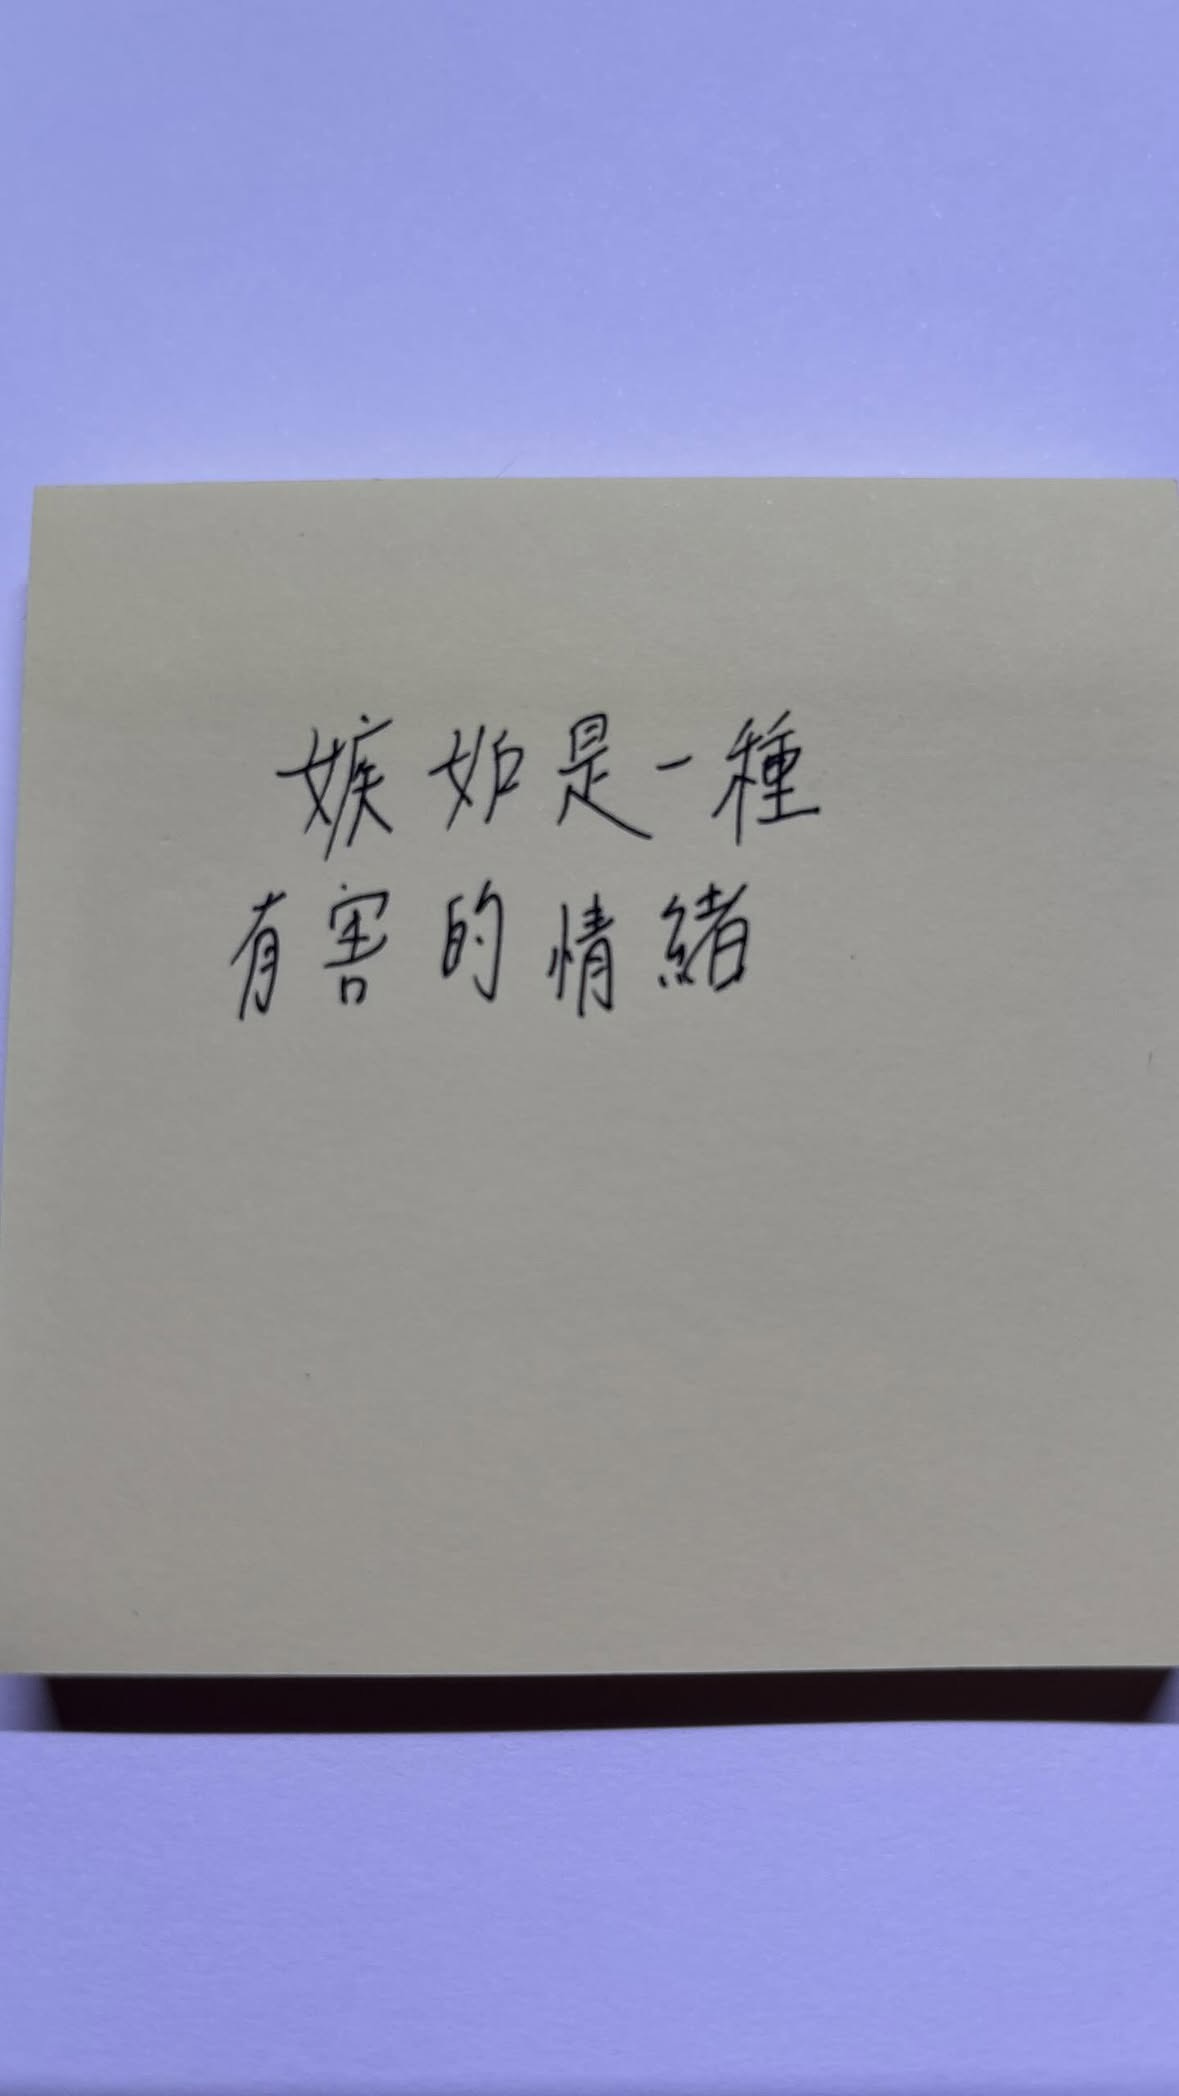 嫉妒是一種
有害的情緒